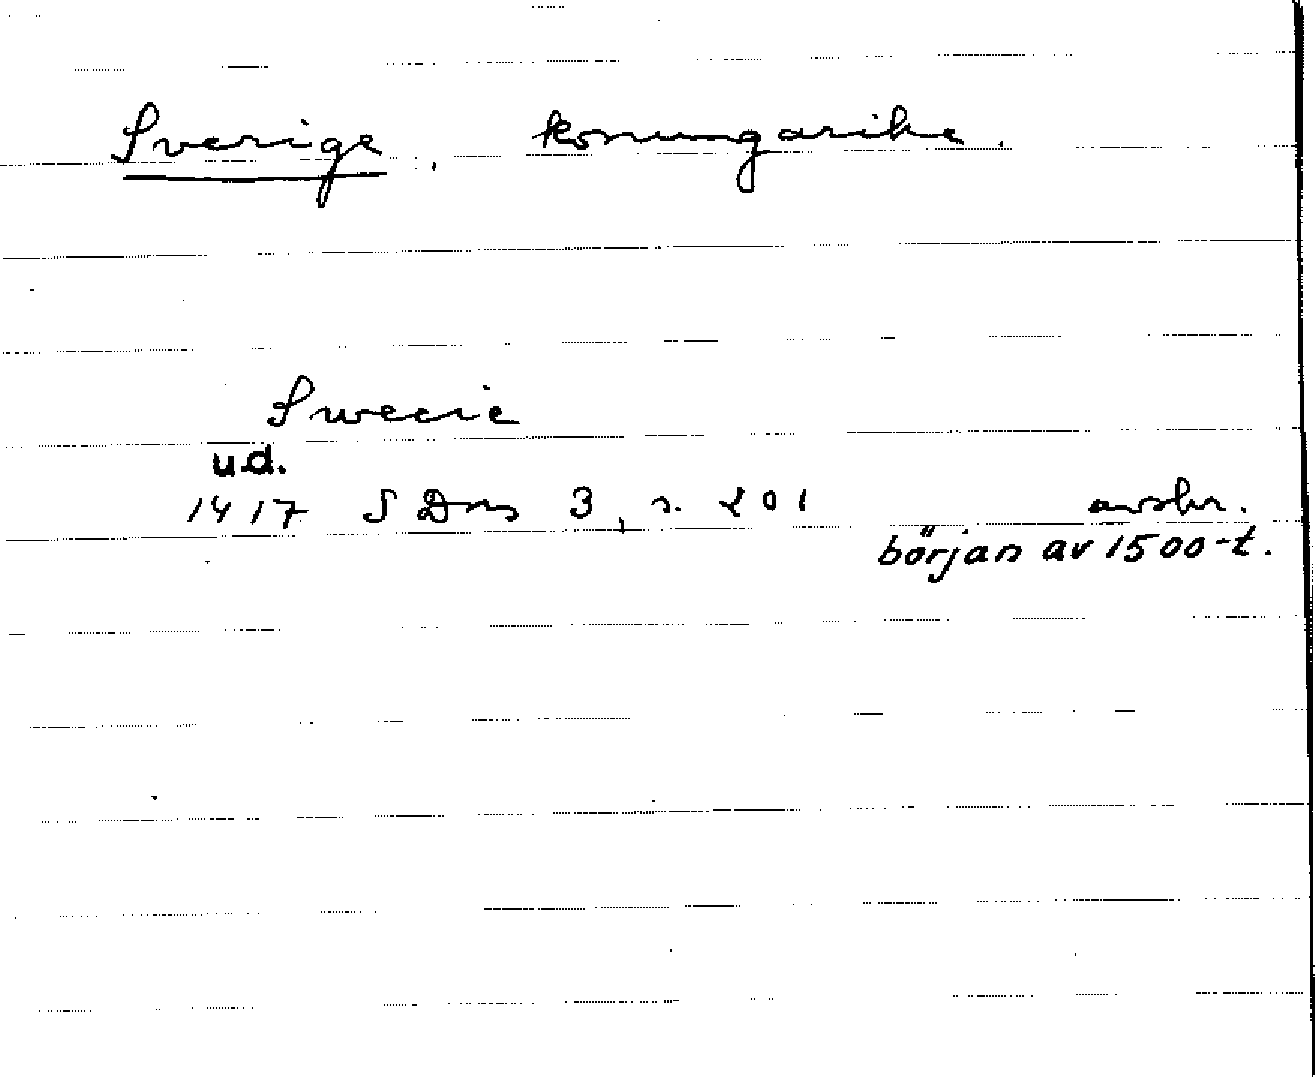 Sverige, konungarike.
Swecie
u.d.
1417 S Dns 3, s. 201 avskr.
början av 1500-t.